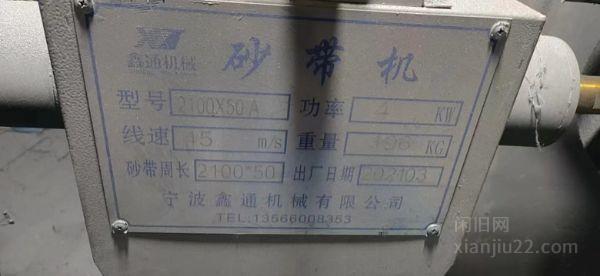 鑫通机械 砂带机
型号 2100X50A 功率 4 KW
线速 45 m/s 重量 196 KG
砂带周长 2100*50 出厂日期 202103
宁波鑫通机械有限公司
TEL.13566008353
闲旧网
xianjiu22.com